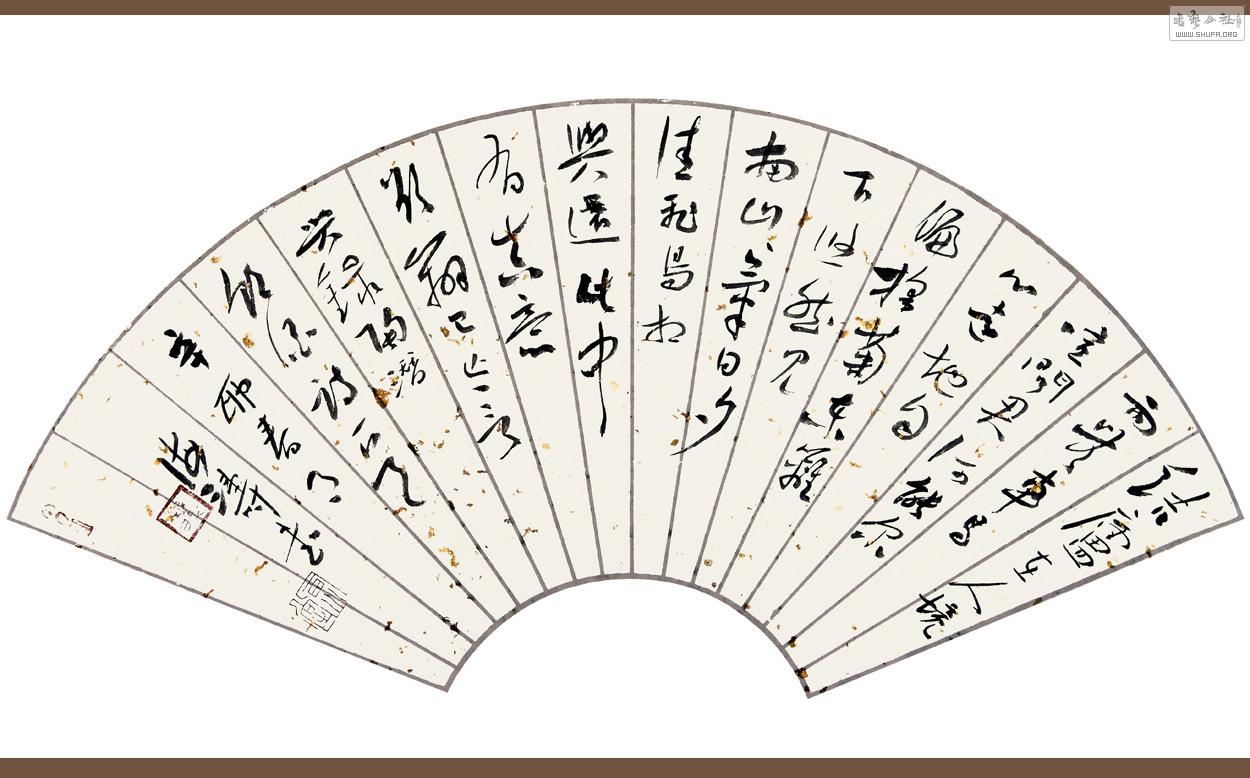 结廬在人境
而無車馬
喧問君何能尔
心遠地自
偏採菊東籬
下悠然見
南山山氣日夕
佳飛鳥相
與還此中
有真意
欲辯已忘言
録陶潛
飲酒詩一首
辛卯春
書
WWW.SHUFA.ORG